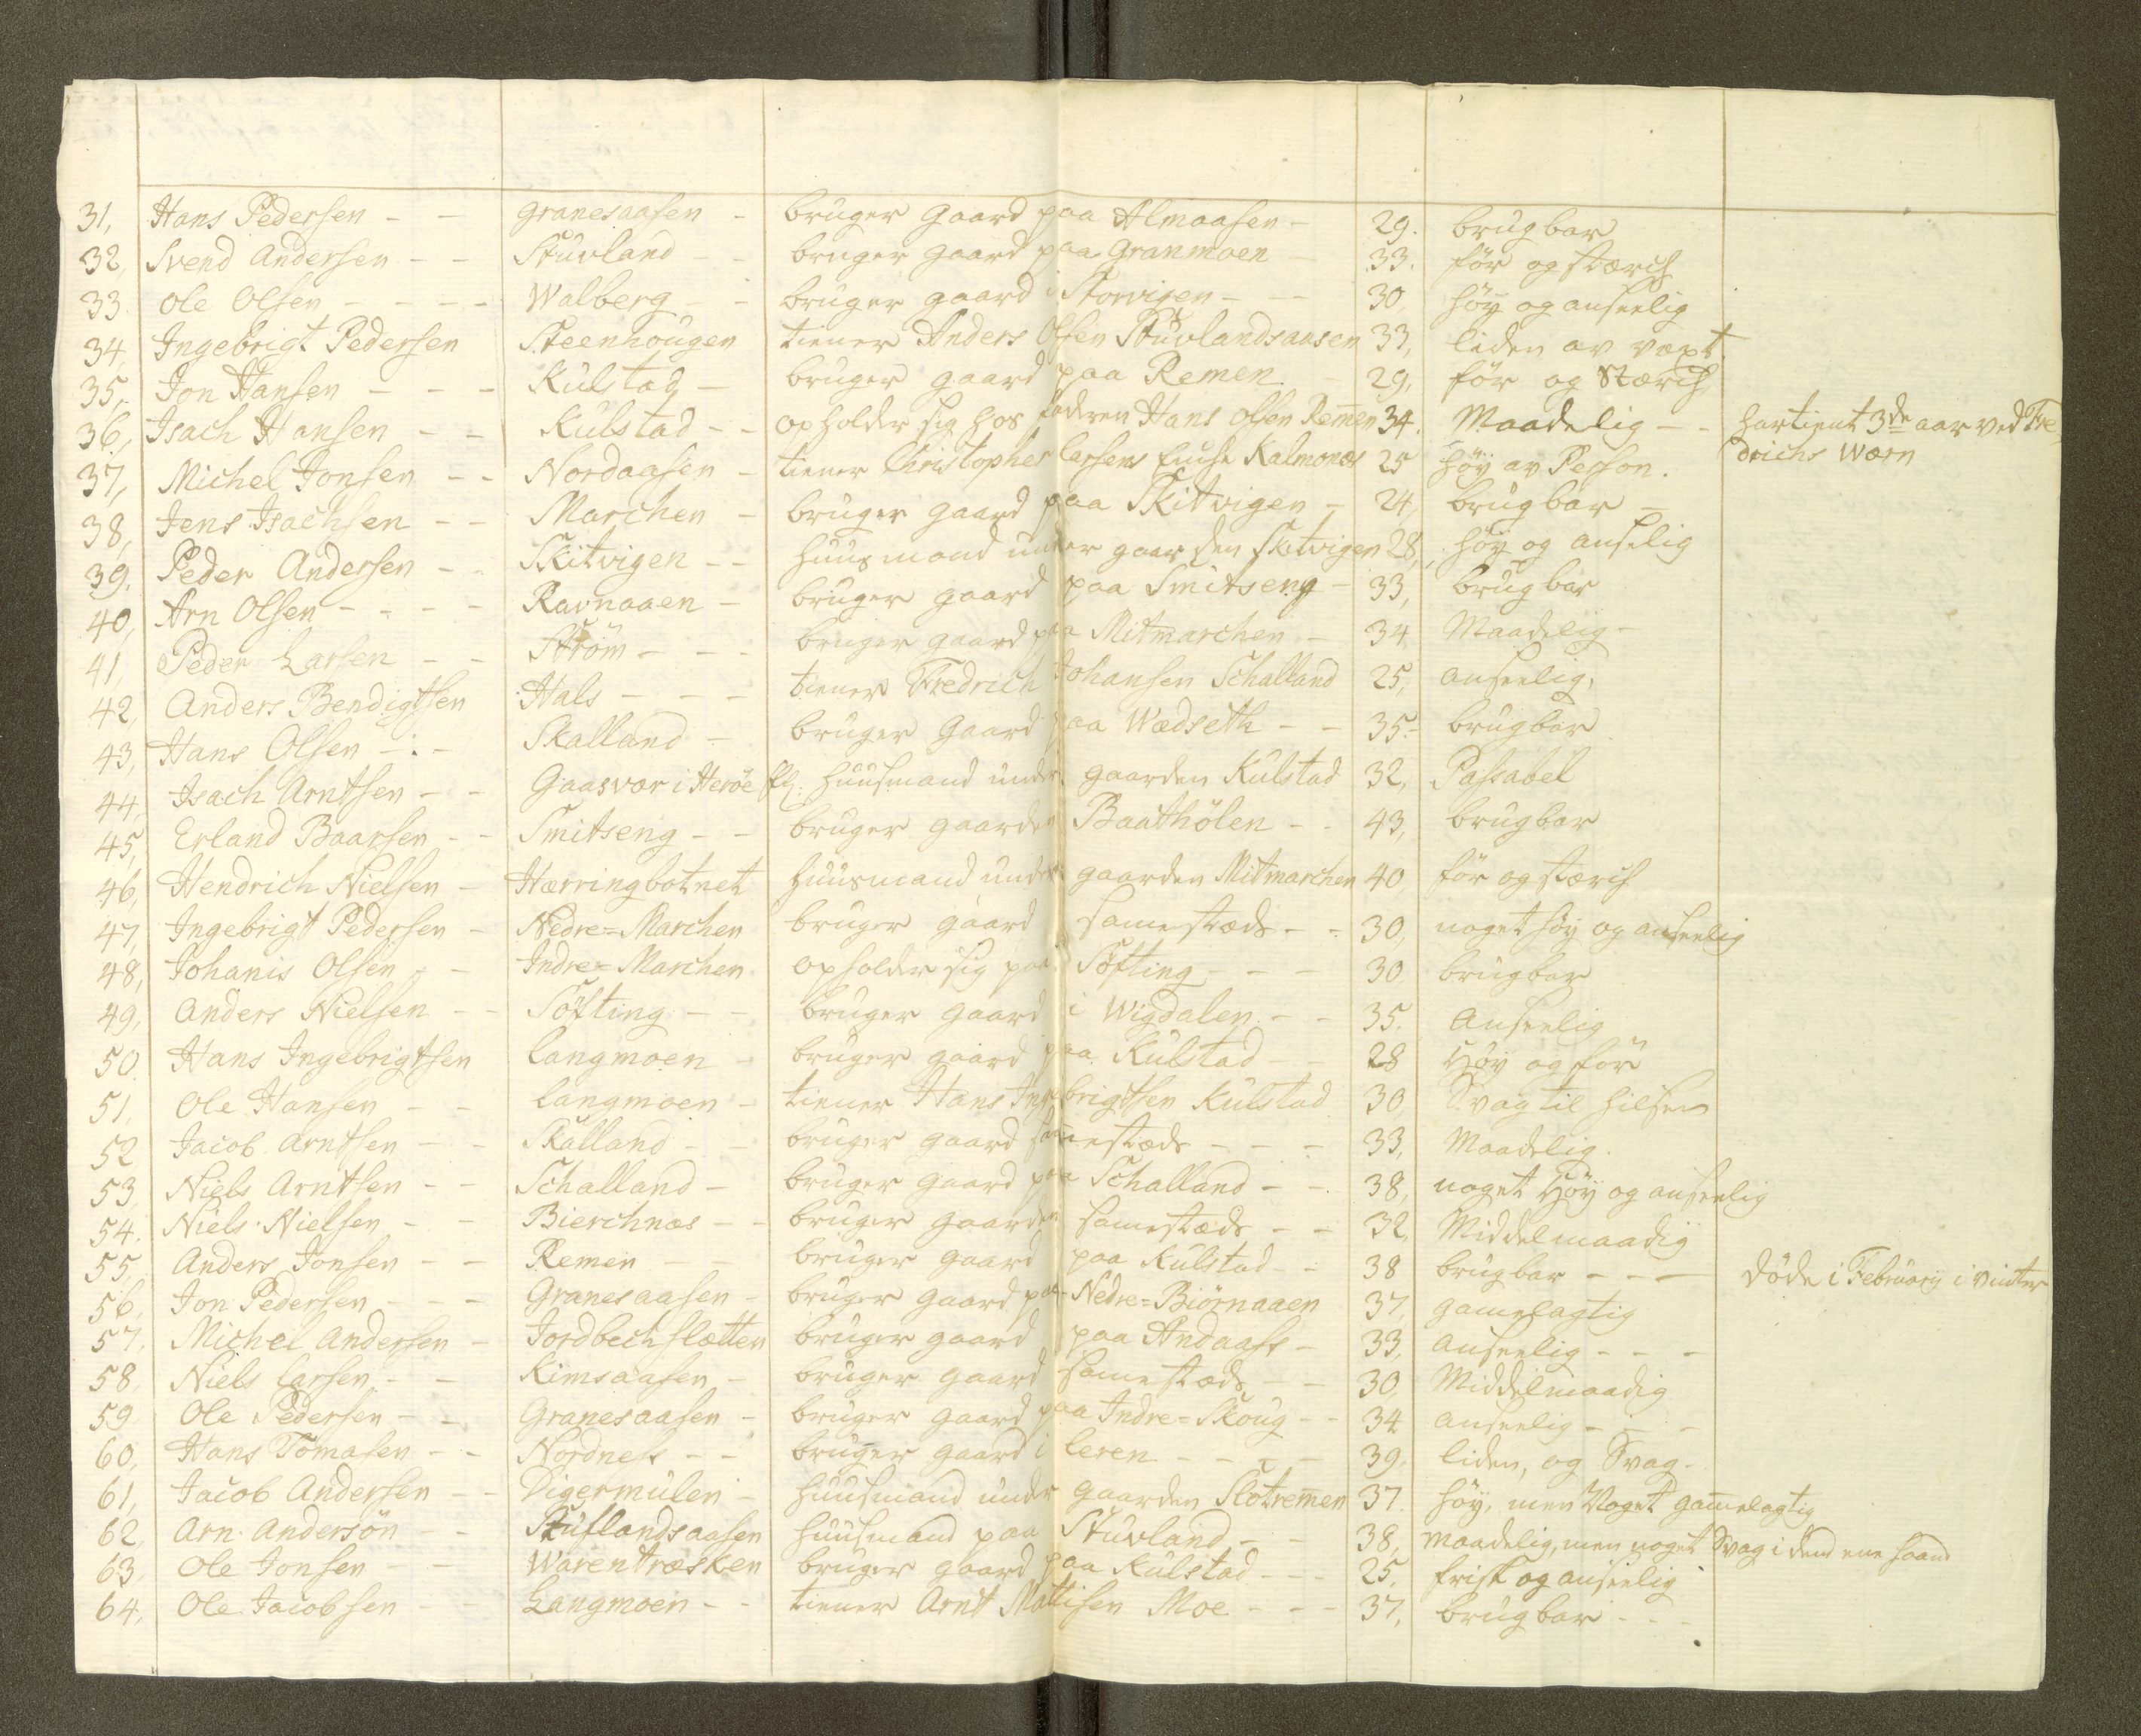 31, Hans Pedersen - - Granesaasen - bruger gaard paa Almaasen - 29. brugbar
32, Svend Andersen - - Stuvland - - bruger gaard paa Granmoen - 33. før og stærch
33. Ole Olsen - - - - Walberg - - bruger gaard i Storvigen - - 30, høy og anseelig
34, Ingebrigt Pedersen Steenhougen tiener Anders Olsen Stuvlandsaasen 33, liden av væxt.
35, Jon Hansen - - - Kulstad - bruger gaard paa Remen - 29, før og stærch
36, Isach Hansen - - Kulstad - - opholder sig hos faderen Hans Olsen Rem̄en 34. Maadelig - - har tient 3de aar ved Fre
drichs Wærn
37, Michel Jonsen - - Nordaasen - tiener Christopher Larsens Kalmones 25 høy av Person.
38, Jens Isachsen - - Marchen - bruger gaard paa Skitvigen - 24, brugbar -
39, Peder Andersen - - Skitvigen - - huusmand under gaarden Skitvigen 28, høy og anselig
40, Arn Olsen - - - - Ravnaaen - bruger gaard paa Smitseng - 33, brugbar
41, Peder Larsen - - Strøm - - - bruger gaard paa Mitmarchen - 34 Maadelig -
42, Anders Bendigtsen Hals - - - tiener Fredrich Johansen Schalland 25, anseelig,
43, Hans Olsen - - - Skalland - bruger gaard paa Wædseth - - 35. brugbar
44, Isach Arntsen - - Gaasvær i Herøe huusmand under gaarden Kulstad 32, Passabel
45, Erland Baarsen - - Smitseng - - bruger gaarden Baathølen - - 43, brugbar
46, Hendrich Nielsen - Hærringbotnet huusmand under gaarden Mitmarchen 40, før og stærch
47, Ingebrigt Pedersen - Nedre=Marchen bruger gaard samestæds - - 30, noget høy og anseelig
48, Johanis Olsen - - Indre=Marchen opholder sig paa Søfting - - - 30 brugbar
49, Anders Nielsen - - Søfting - - bruger gaard i Wigdalen - - 35, Anseelig
50. Hans Ingebrigtsen Langmoen - bruger gaard paa Kulstad - 28 Høy og før
51, Ole Hansen - - Langmoen - tiener Hans Ingebrigtsen Kulstad 30, Svag til hilsen
52 Jacob Arntsen - - Skalland - - bruger gaard samestæds - - - 33, Maadelig.
53, Niels Arntsen - - Schalland - bruger gaard paa Schalland - - 38, noget Høy og anseelig
54. Niels Nielsen - - Bierchnæs - - bruger gaarden samestæds - - 32, Middelmaadig
55, Anders Jonsen - - Remen - - bruger gaard paa Kulstad - - 38 brugbar - - - døde i February i vinter
56, Jon Pedersen - - - Granesaasen - bruger gaard paa Nedre=Biørnaaen 37, gamelagtig
57, Michel Andersen - Jordbechslætten bruger gaard paa Andaass - 33, anseelig - - -
58, Niels Larsen - - Rimsaasen - bruger gaard samestæds - - 30, Middelmaadig
59 Ole Pedersen - - Granesaasen - bruger gaard paa Indre=Skoug - - 34 anseelig - - -
60, Hans Tomasen - - Nordness - - bruger gaard i Leren - - - - 39, liden, og Svag -
61, Jacob Andersen - - Digermulen - huusmand under gaarden Slotrem̄en 37. høy, men Noget gam̄elagtig
62, Arn Andersøn - - Stuflandsaasen huusmand paa Stuvland - - 38, maadelig, men noget Svag i dend ene haand
63, Ole Jonsen - - Warentræsken bruger gaard paa Kulstad - - - 25, frisk og anseelig
64, Ole Jacobsen - - Langmoen - - tiener Arnt Mattisen Moe - - - 37, brugbar - - -